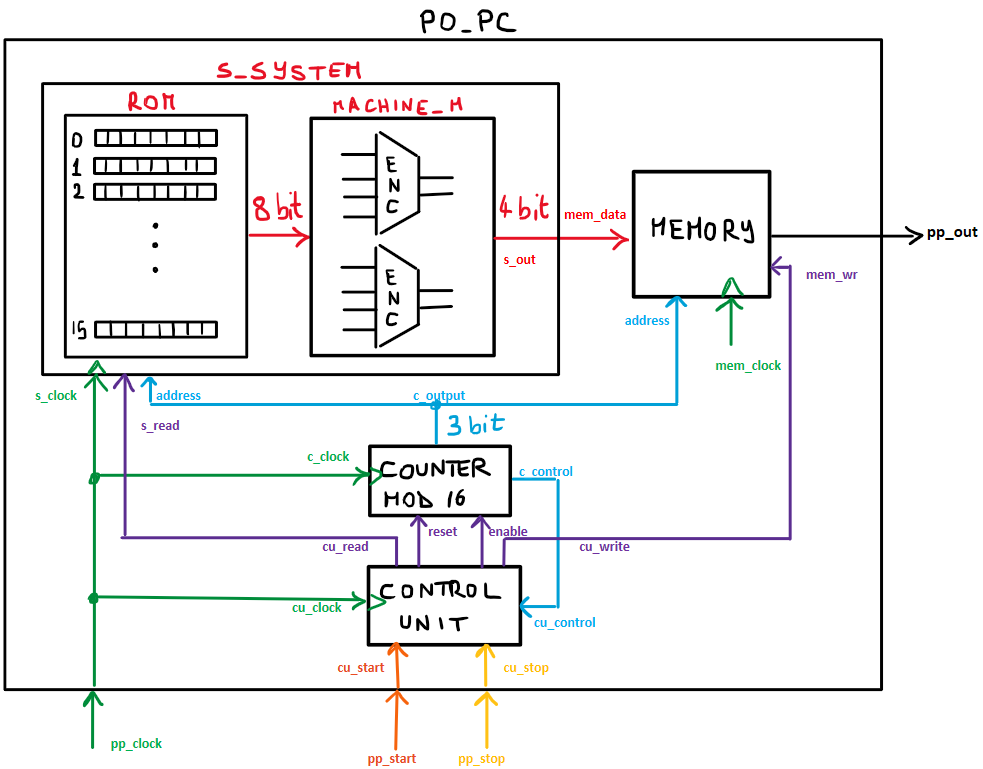 PO_PC
S_SYSTEM
ROM
MACHINE_M
0
1
2
15
8 bit
E
N
C
E
N
C
4 bit
mem_data
s_out
MEMORY
pp_out
mem_wr
address
mem_clock
s_clock
address
c_output
s_read
3 bit
c_clock
COUNTER
MOD 16
c_control
reset
enable
cu_read
cu_write
cu_clock
CONTROL
UNIT
cu_control
cu_start
cu_stop
pp_clock
pp_start
pp_stop